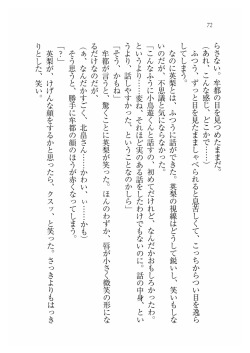 72
らさない。牟都の目を見つめたままだ。
「あれ、こんな感じ、どこかで……」
ふつうだと見つめたまましゃべられると息苦しくて、こっちからつい目を逸ら
してしまう。
なのに英梨とは、ふつうに話ができた。英梨の視線はどうして鋭いし、笑いもしな
いのだが、不思議と気にならなかった。
「こんなふうに小鳥遊くんと話すの、初めてだけれど、なんだかおもしろかったわ。
というより……変ね、それほど実のある話をしたわけでもないのに。話の中身、とい
うより、話しやすかった、ということなのかしら」
「そう、かもね」
牟都が言うと、驚くことに英梨が笑った。ほんのわずか、唇が小さく微笑の形にな
るだけなのだが、
「あ、なんだかすごく、北畠さん……かわい、い……かも」
そう思うと、勝手に牟都の顔のほうが赤くなってしまう。
「？」
英梨が、けげんな顔をするかと思ったら、クスッ、と笑った。さっきよりもはっき
りとした、笑い。